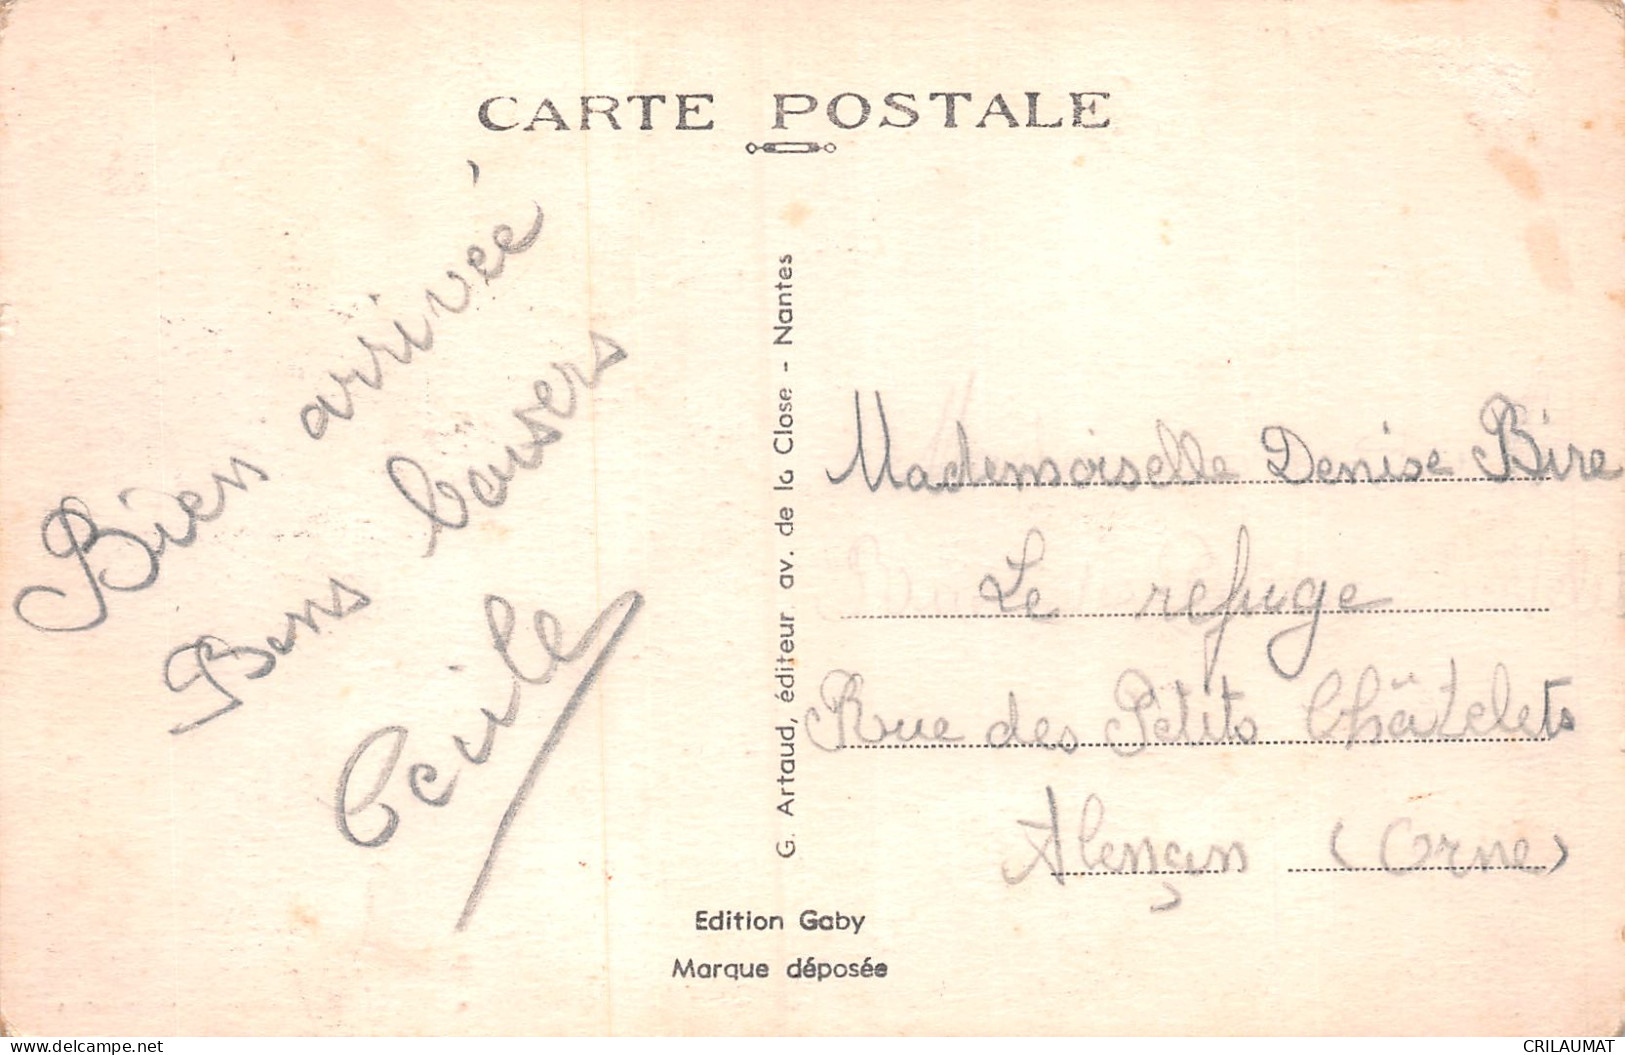 CARTE POSTALE
Bien arrivée
Bons baisers
Cécile
G. Artaud, éditeur av. de la Close - Nantes
Mademoiselle Denise Bire
Le refuge
Rue des Petits Châtelets
Alençon (Orne)
Edition Gaby
Marque déposée
delcampe.net
CRILAUMAT